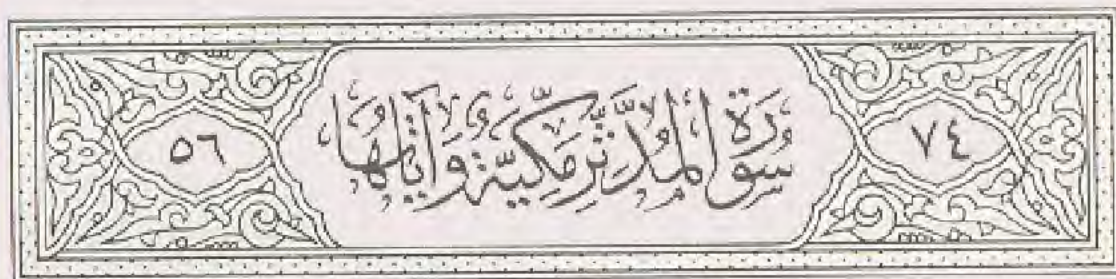 ٧٤ سُورَةُ الْمُدَّثِّرِ مَكِّيَّةٌ وَآيَاتُهَا ٥٦